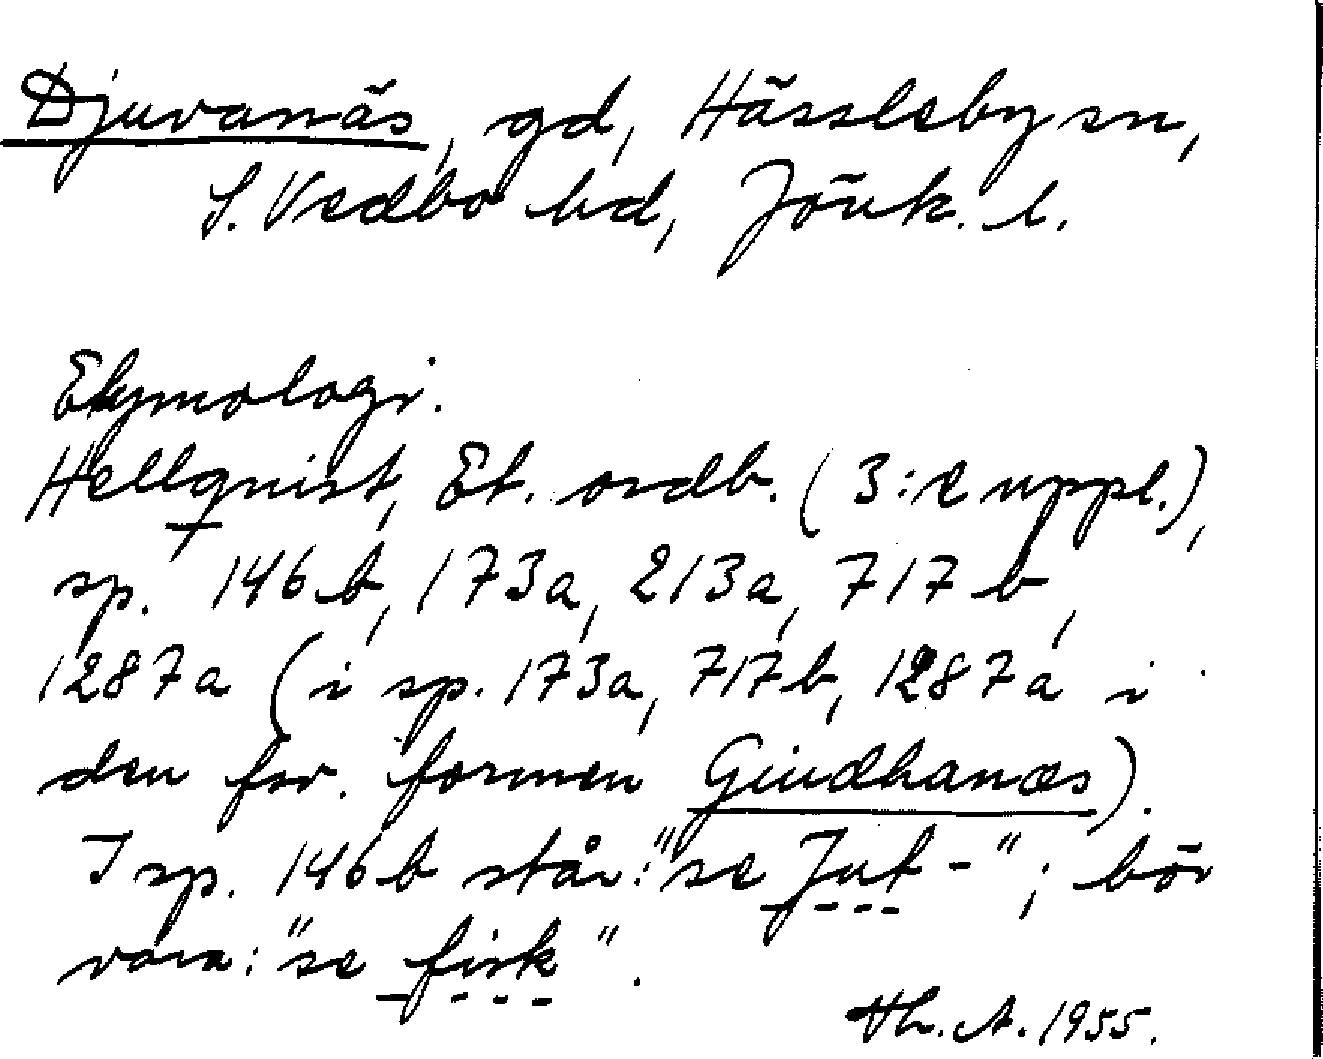 Djuvanäs, gd, Hässleby sn,
S. Vedbo hd, Jönk. l.
Etymologi.
Hellquist, Et. ordb. (3:e uppl.),
sp. 146b, 173a, 213a, 717b,
1287a (i sp. 173a, 717b, 1287a i
den fsv. formen Giudhanæs).
I sp. 146b står: "se Jut-"; bör
vara: "se fisk".
Hh. A. 1955.